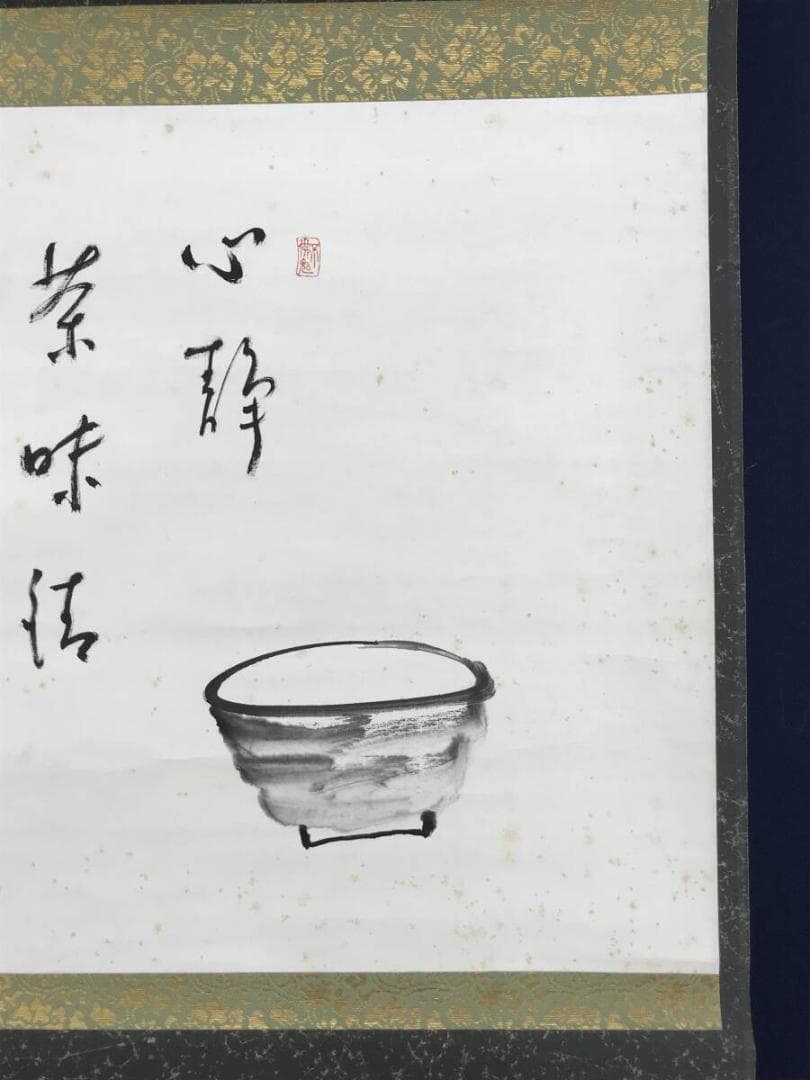 心静
茶味清